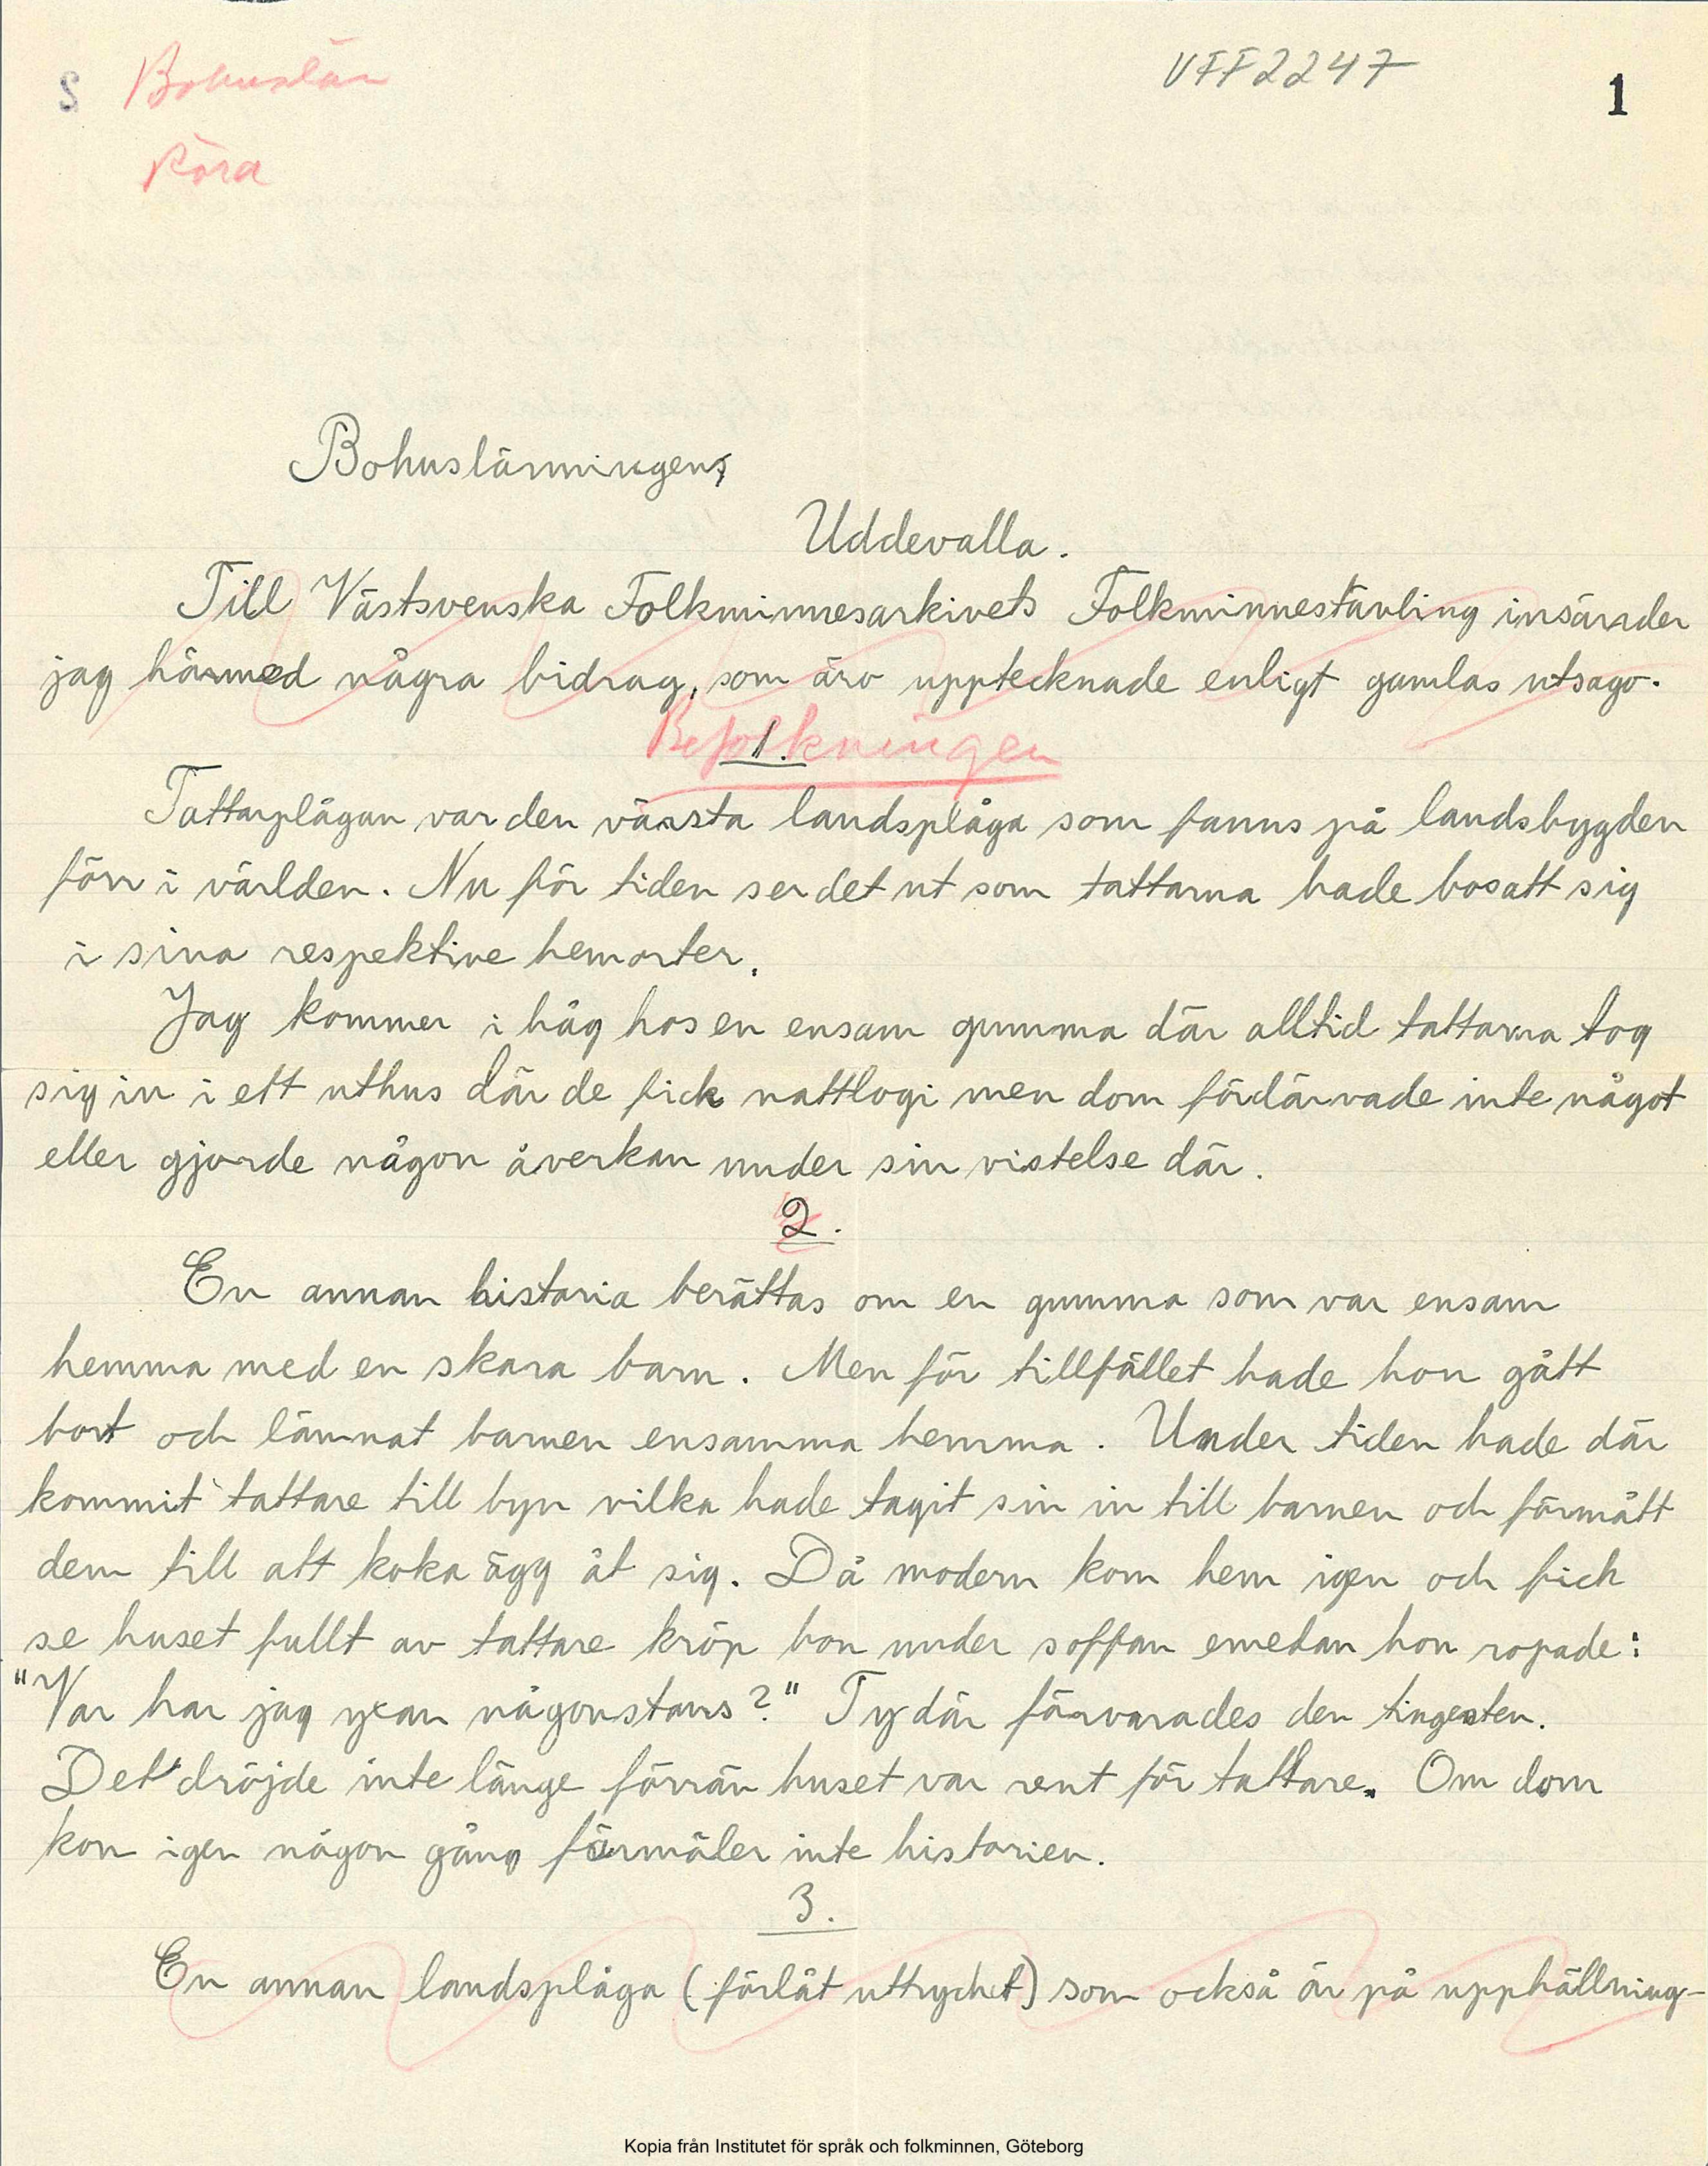 S Bohuslän
VFF2247
1
Röra
Bohusläningens
Uddevalla.
Till Västsvenska Folkminnesarkivets Folkminnestävling insänder
jag härmed några bidrag, som äro upptecknade enligt gamlas utsago.
Befolkningen
1.
Tattarplågan var den värsta landsplåga som fanns på landsbygden
förr i världen. Nu för tiden ser det ut som tattarna hade bosatt sig
i sina respektive hemorter.
Jag kommer i håg hos en ensam gumma där alltid tattarna tog
sig in i ett uthus där de fick nattlogi men dom fördärvade inte något
eller gjorde någon åverkan under sin vistelse där.
2.
En annan historia berättas om en gumma som var ensam
hemma med en skara barn. Men för tillfället hade hon gått
bort och lämnat barnen ensamma hemma. Under tiden hade där
kommit tattare till byn vilka hade tagit sin in till barnen och förmått
dem till att koka ägg åt sig. Då modern kom hem igen och fick
se huset fullt av tattare kröp hon under soffan emedan hon ropade:
"Var har jag yxan någonstans?" Ty där förvarades den tingesten.
Det dröjde inte länge förrän huset var rent för tattare. Om dom
kom igen någon gång förmäler inte historien.
3.
En annan landsplåga (förlåt uttrycket) som också är på upphällning-
Kopia från Institutet för språk och folkminnen, Göteborg